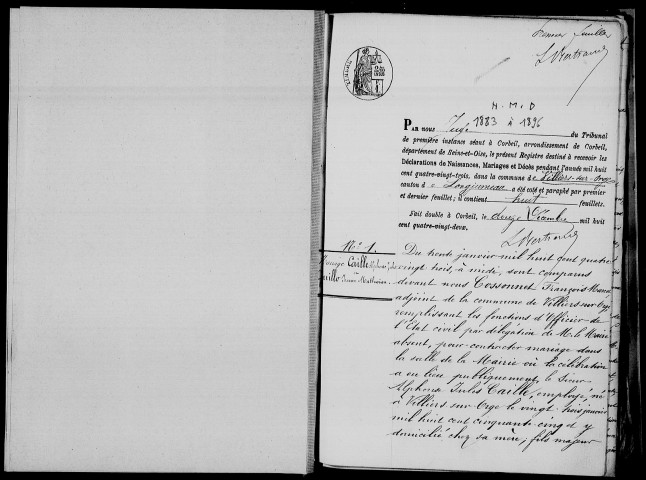 Premier feuillet
LBertrand
N. M. D
1883 à 1896
PAR nous Juge du Tribunal
de première instance séant à Corbeil, arrondissement de Corbeil,
département de Seine-et-Oise, le présent Registre destiné à recevoir les
Déclarations de Naissances, Mariages et Décès pendant l'année mil huit
cent quatre-vingt-trois, dans la commune de Villiers-sur-Orge
canton de Longjumeau a été coté et paraphé par premier
et dernier feuillet; il contient huit feuillets.
Fait double à Corbeil, le douze Xbre mil huit
cent quatre-vingt-deux.
LBertrand
N° 1.
Mariage Caille
Du trente janvier mil huit cent quatre
vingt trois, à midi, sont comparus
devant nous Cossonnet François Marie
adjoint de la commune de Villiers-sur-Orge
remplissant les fonctions d'Officier de
l'Etat civil par délégation de M. le Maire
absent, pour contracter mariage dans
la salle de la Mairie où la célébration
a eu lieu publiquement, le Sieur
Alphonse Jules Caille, employé, né
à Villiers-sur-Orge le vingt-trois janvier
mil huit cent cinquante-cinq et y
domicilié chez sa mère; fils majeur